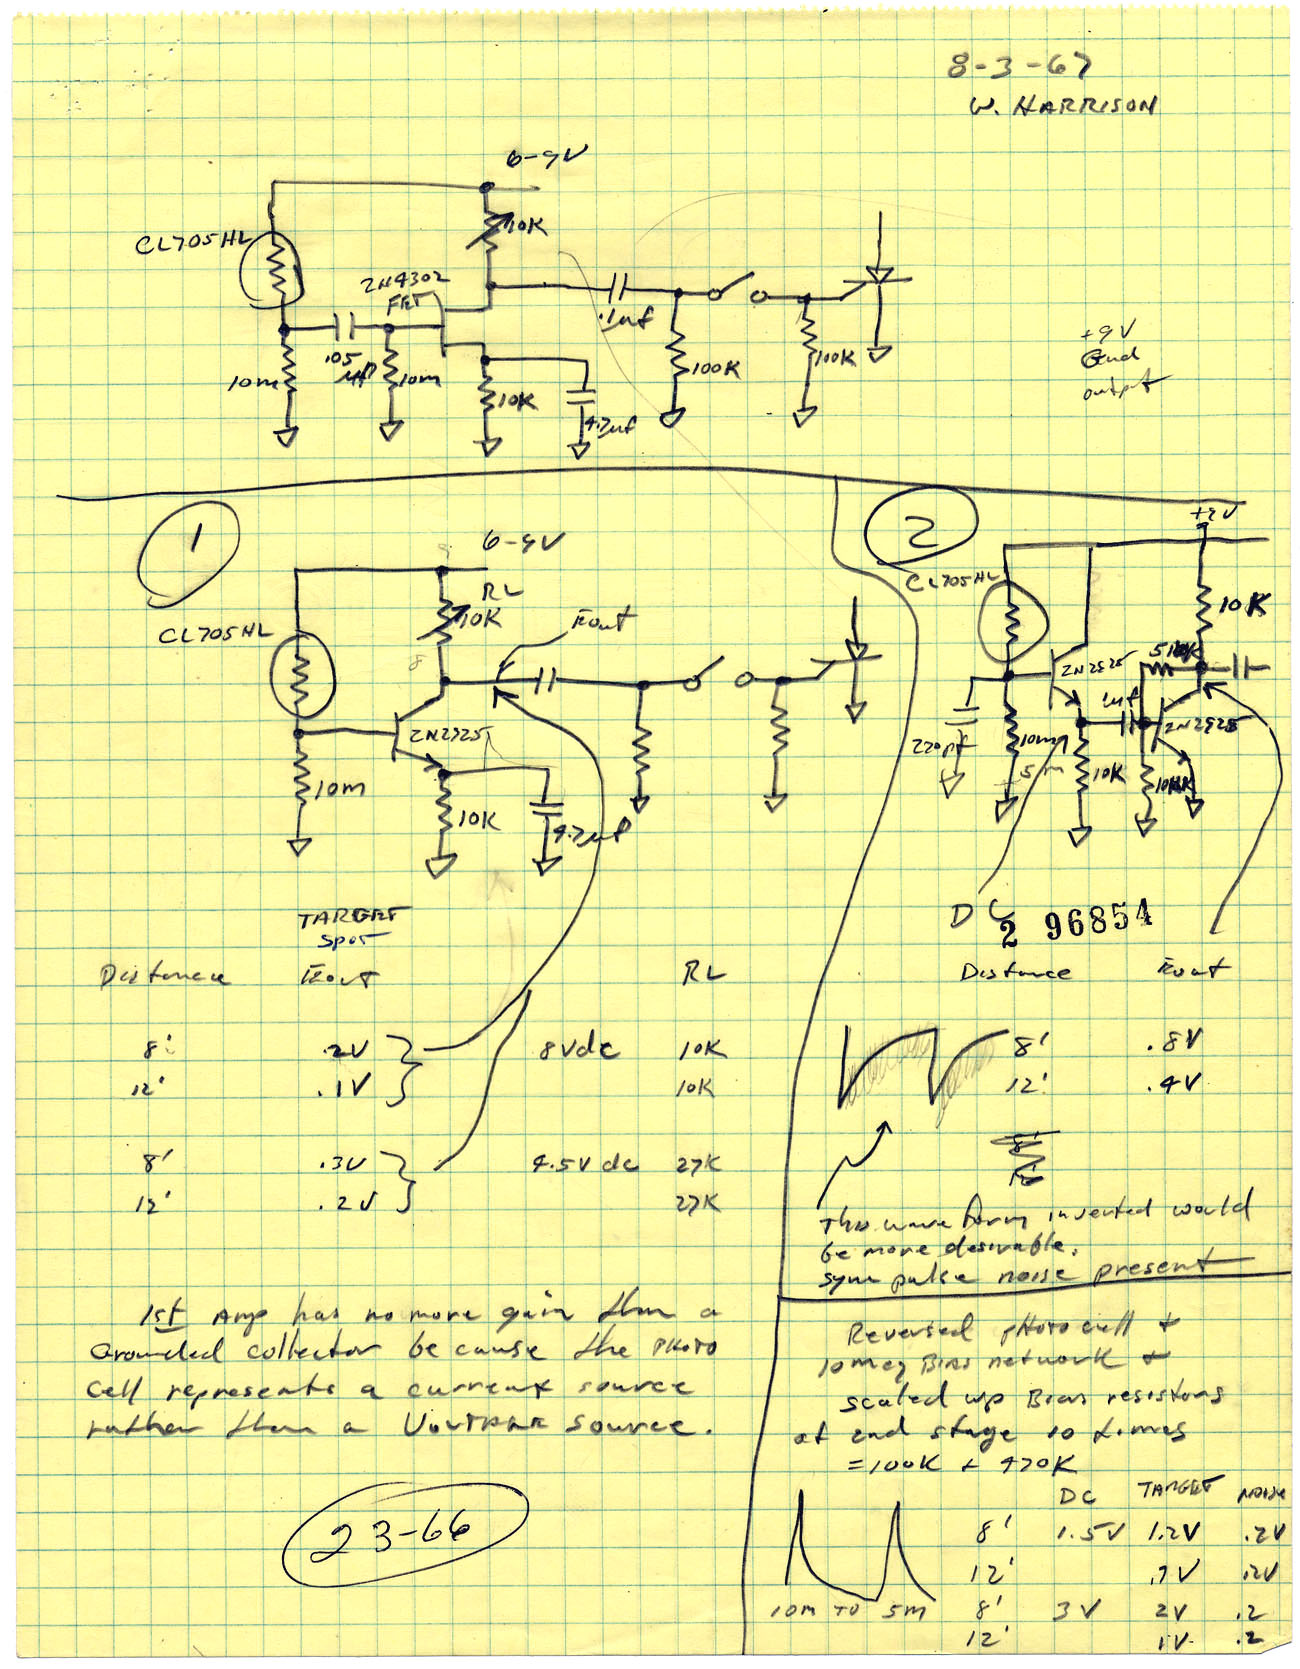 8-3-67
W. HARRISON
6-9V
10K
CL705HL
2N4302
FET
.05
10m
10m
10K
4.7uf
.1uf
100K
100K
+9V
Gnd
output
1
6-9V
RL
10K
Eout
CL705HL
8
2N2925
10m
10K
4.7uf
2
+9V
CL705HL
10K
2N2925
1uf
2N2925
220pf
10meg
5m
10K
DC
2 96854
TARGET
SPOT
Distance Eout RL
8' .2V 8Vdc 10K
12' .1V 10K
8' .3V 4.5Vdc 27K
12' .2V 27K
1st Amp has no more gain than a
Grounded collector because the PHOTO
Cell represents a current source
rather than a VOLTAGE source.
23-66
Distance Eout
8' .8V
12' .4V
This wave form inverted would
be more desirable.
sync pulse noise present
Reversed pHoto cell +
10meg Bias network +
scaled up Bias resistors
at 2nd stage 10 times
=100K + 470K
DC TARGET NOISE
8' 1.5V 1.2V .2V
12' .7V .2V
10m TO 5m 8' 3V 2V .2
12' 1V .2